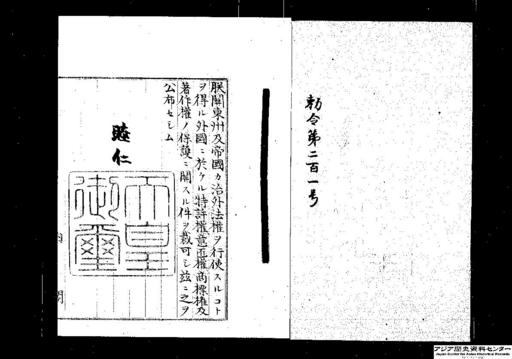 勅令第二百一号
朕関東州及帝國カ治外法權ヲ行使スルコト
ヲ得ル外國ニ於ケル特許權意匠權商標權及
著作權ノ保護ニ關スル件ヲ裁可シ茲ニ之ヲ
公布セシム
睦仁
天皇
御璽
アジア歴史資料センター
Japan Center for Asian Historical Records